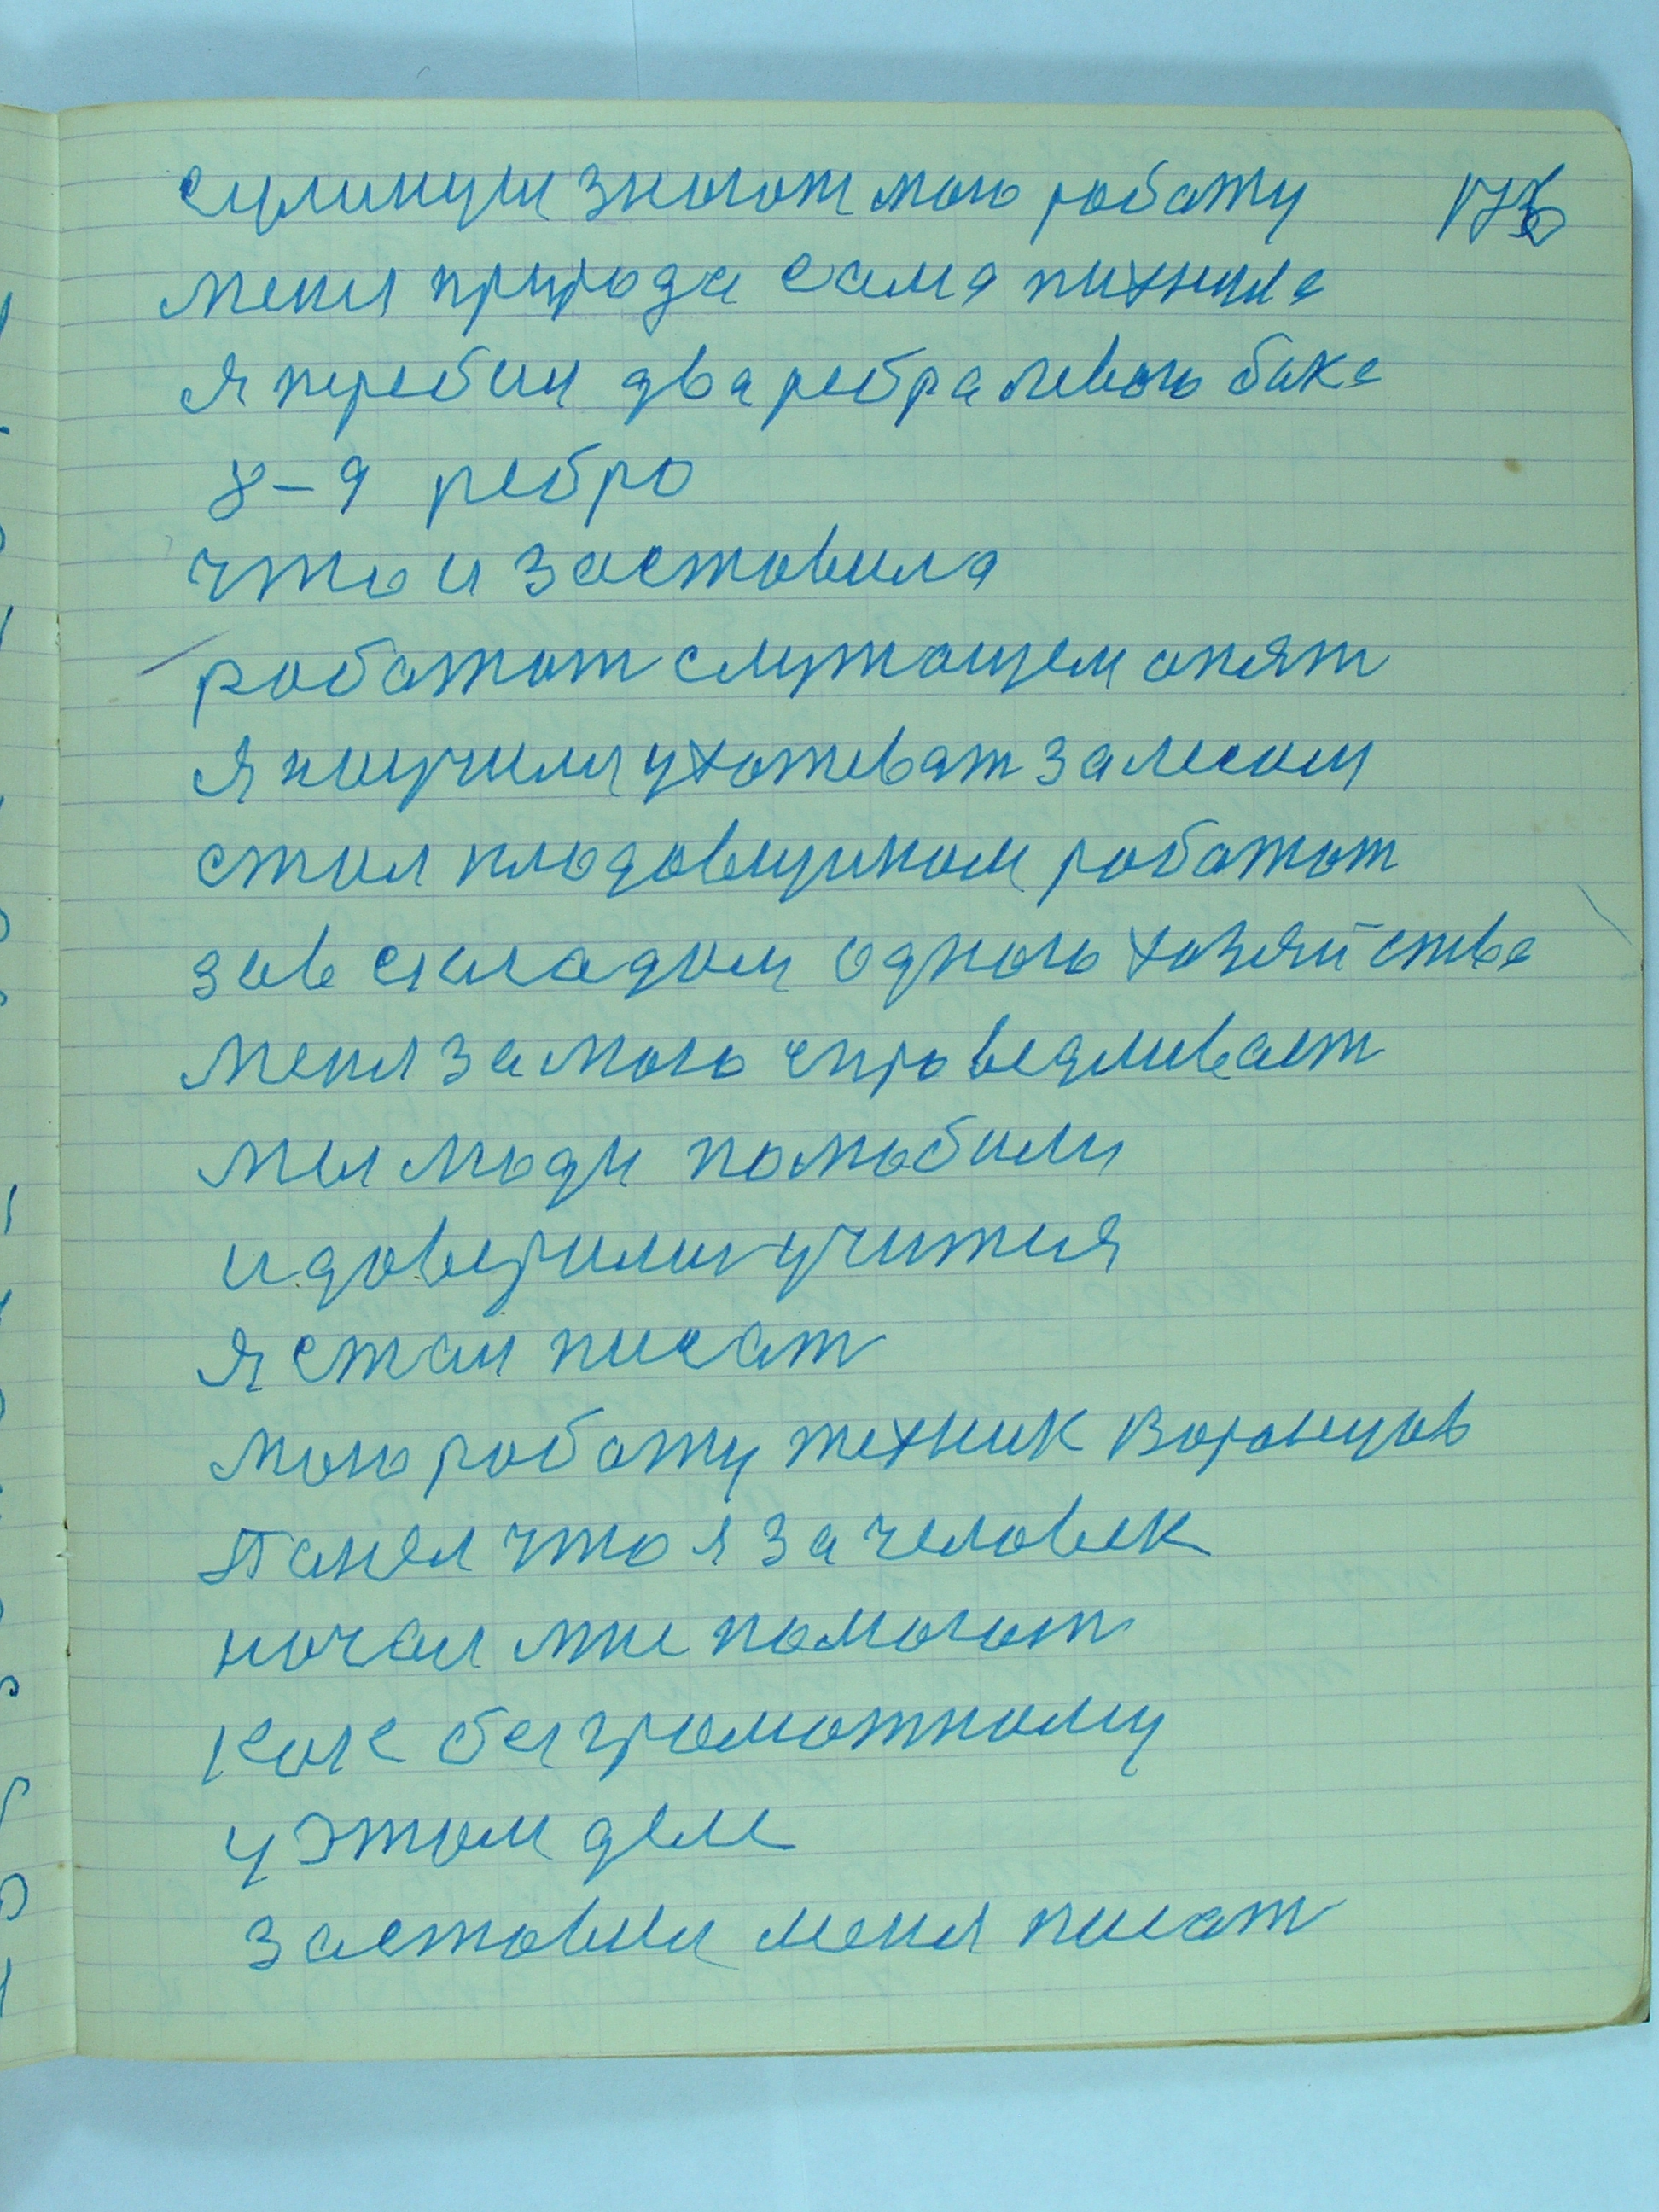 сулинцы знают мою роботу 173
меня природа сама пихнула
я перебил два ребра левого бака
8–9 ребро
что и заставила
роботат служащем опят
я поучился ухажеват за лесом
стал кладовщиком роботат
зав складом одного хозяйства
меня за мою справедливаст
мея люди полюбили
и доверили учится
я стал писат
мою роботу техник Воронцов
Понял что я за человек
начал мне помогат
как безграмотному
у этом деле
заставил меня писат